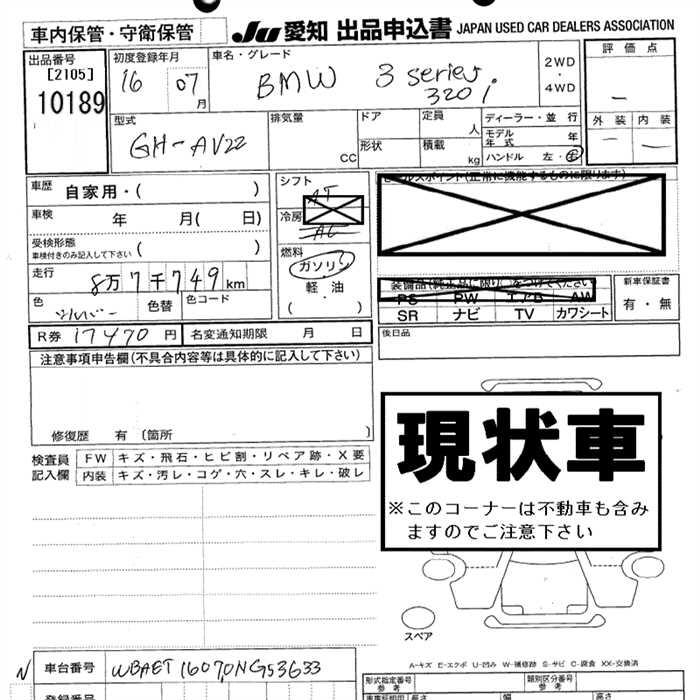 車内保管・守衛保管
JU 愛知 出品申込書 JAPAN USED CAR DEALERS ASSOCIATION
出品番号
[2105]
10189
初度登録年月
16 07 月
車名・グレード
BMW 3 series 320i
2WD
・
4WD
評価点
—
外装 内装
— —
型式
GH-AV22
排気量
CC
ドア
形状
定員
人
積載
kg
ディーラー・並行
モデル年式 年
ハンドル 左・右
車歴 自家用・( )
車検 年 月( 日)
受検形態
車検付きのみ記入して下さい ( )
走行 8万7千749km
色 シルバー 色替 色コード
シフト
AT
冷房
AC
燃料
ガソリン
・
軽・油
( )
セールスポイント(正常に機能するものに限ります)
装備品(純正品に限り○をつけてください)
PS PW エアB AW
SR ナビ TV カワシート
新車保証書
有・無
後日品
R券 17470円 名変通知期限 月 日
注意事項申告欄(不具合内容等は具体的に記入して下さい)
修復歴 有 〔箇所 〕
検査員記入欄
FW キズ・飛石・ヒビ割・リペア跡・X要
内装 キズ・汚レ・コゲ・穴・スレ・キレ・破レ
現状車
※このコーナーは不動車も含み
ますのでご注意下さい
スペア
A-キズ E-エクボ U-凹み W-補修跡 S-サビ C-腐食 XX-交換済
N 車台番号 WBAET16070NG53633
登録番号
形式指定番号
参考
類別区分番号
参考
長さ 幅 高さ